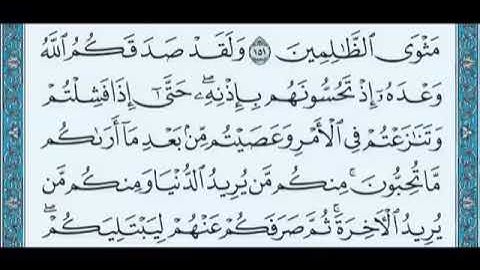 مَثْوَى ٱلظَّٰلِمِينَ ١٥١ وَلَقَدْ صَدَقَكُمُ ٱللَّهُ
وَعْدَهُۥٓ إِذْ تَحُسُّونَهُم بِإِذْنِهِۦ ۖ حَتَّىٰٓ إِذَا فَشِلْتُمْ
وَتَنَٰزَعْتُمْ فِى ٱلْأَمْرِ وَعَصَيْتُم مِّنۢ بَعْدِ مَآ أَرَىٰكُم
مَّا تُحِبُّونَ ۚ مِنكُم مَّن يُرِيدُ ٱلدُّنْيَا وَمِنكُم مَّن
يُرِيدُ ٱلْءَاخِرَةَ ۚ ثُمَّ صَرَفَكُمْ عَنْهُمْ لِيَبْتَلِيَكُمْ ۖ